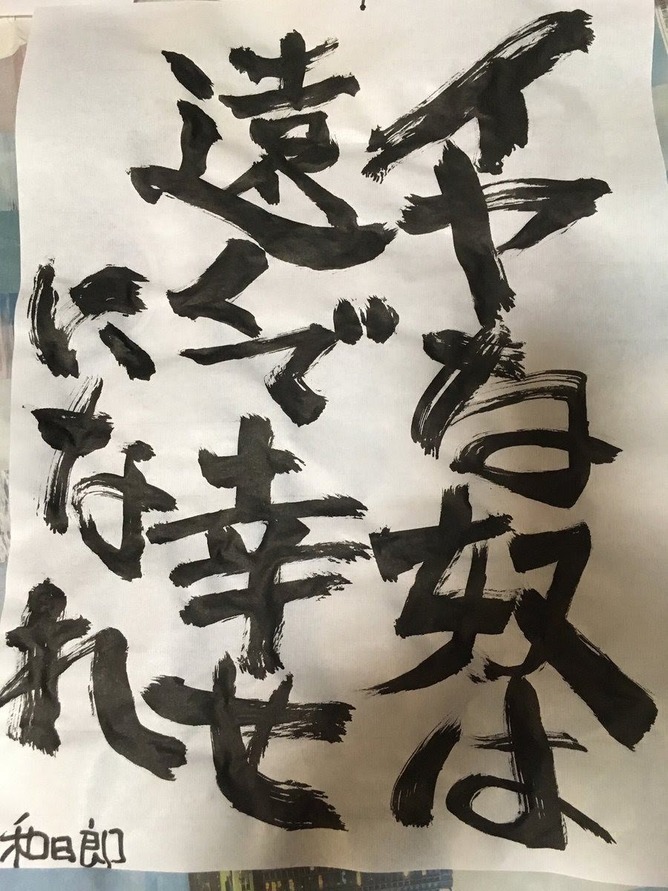 イヤな奴は
遠くで幸せ
になれ
和日郎